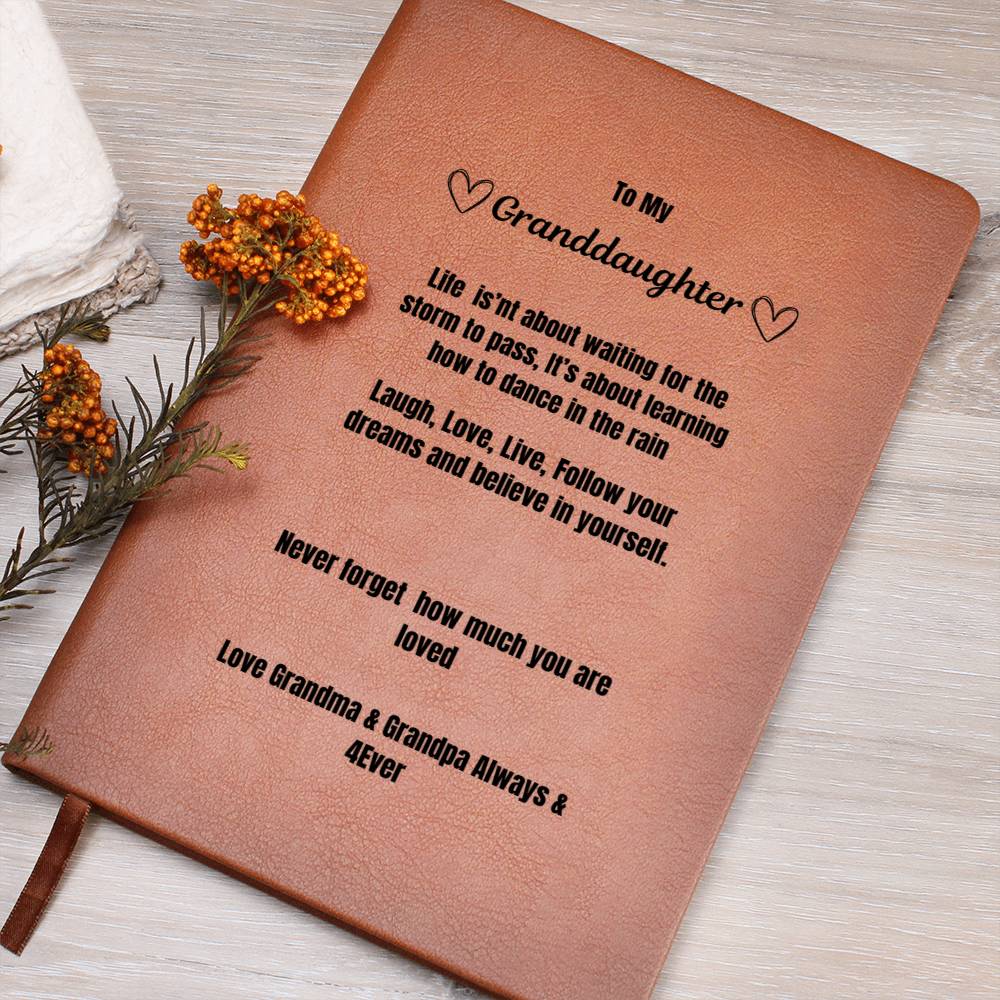 To My
Granddaughter
Life is'nt about waiting for the
storm to pass, It's about learning
how to dance in the rain
Laugh, Love, Live, Follow your
dreams and believe in yourself.
Never forget how much you are
loved
Love Grandma & Grandpa Always &
4Ever